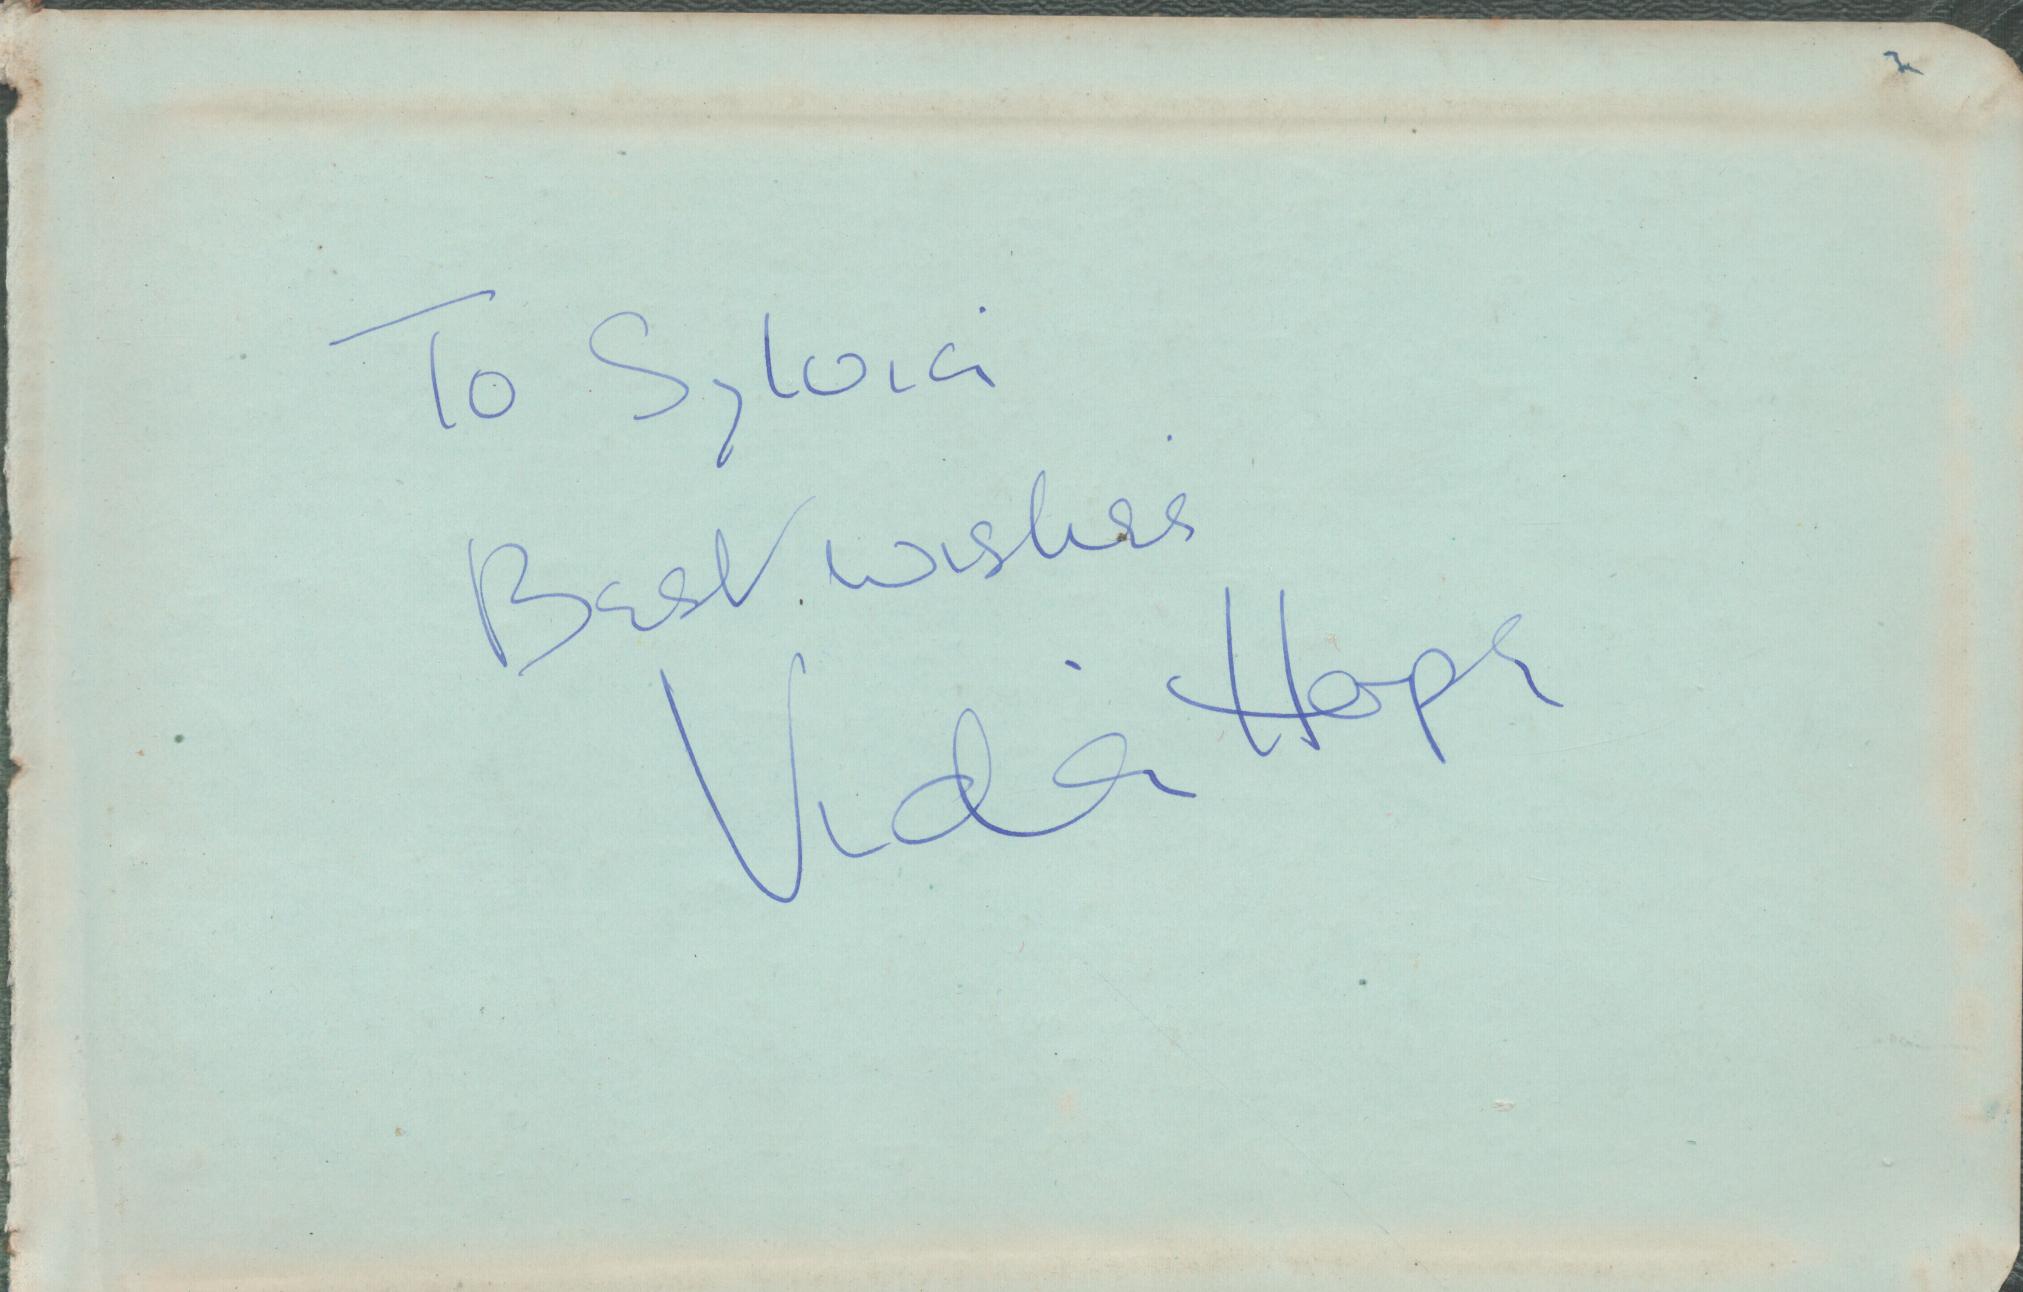 To Sylvia
Best wishes
Vida Hope